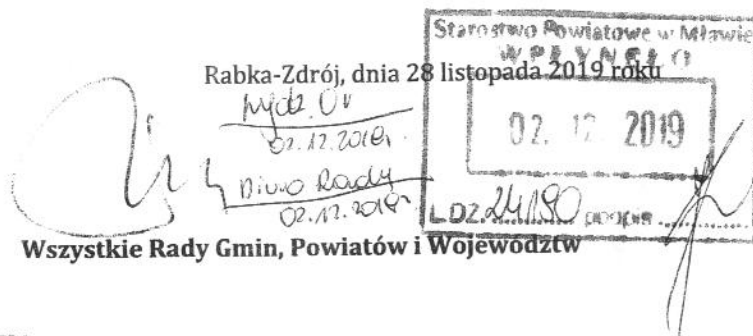 Starostwo Powiatowe w Mławie
WPŁYNĘŁO
Rabka-Zdrój, dnia 28 listopada 2019 roku
02. 12 2019
02.12.2019r.
Biuro Rady
02.12.2019r
L.DZ. 24190 podpis
Wszystkie Rady Gmin, Powiatów i Województw